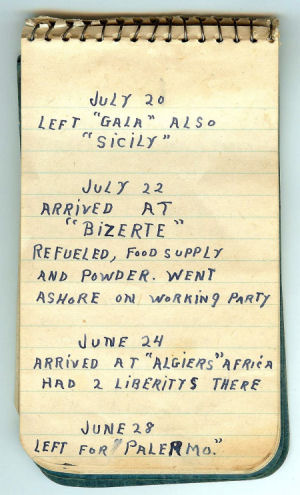 JULY 20
LEFT "GALA" ALSO
"SICILY"
JULY 22
ARRIVED AT
"BIZERTE"
REFUELED, FOOD SUPPLY
AND POWDER. WENT
ASHORE ON WORKING PARTY
JUNE 24
ARRIVED AT "ALGIERS" AFRICA
HAD 2 LIBERITYS THERE
JUNE 28
LEFT FOR "PALERMO."